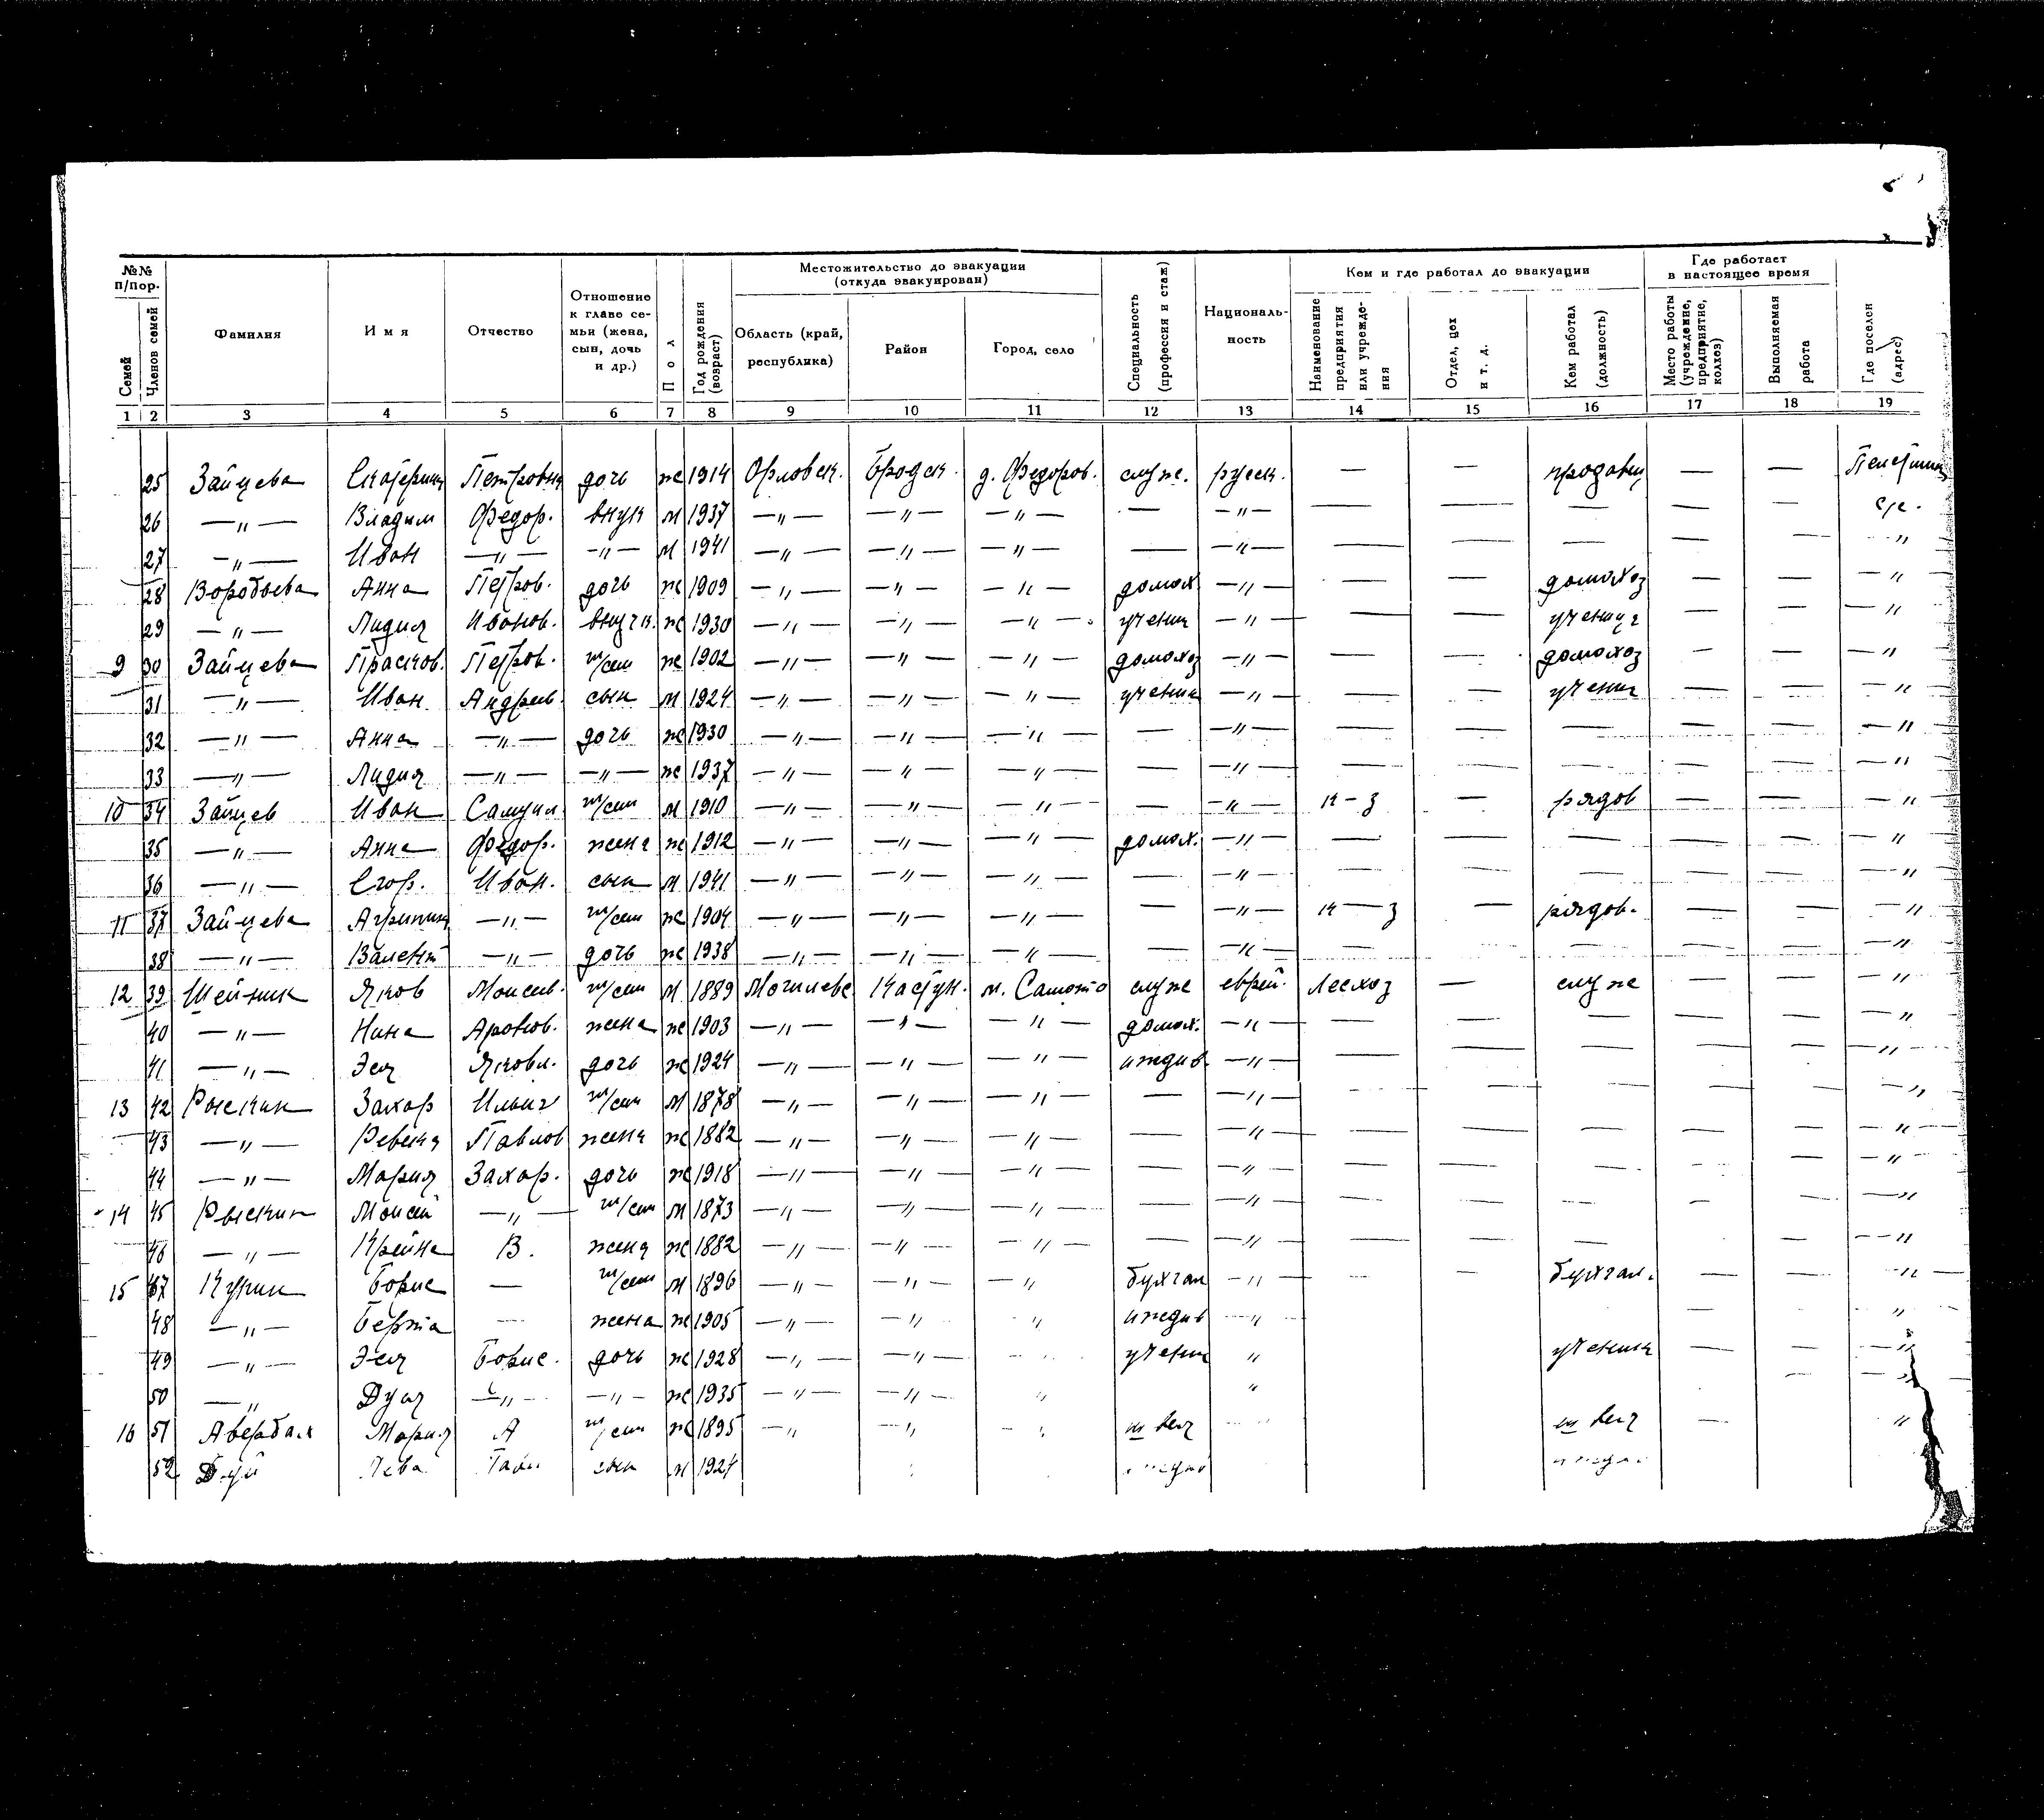 №№ п/пор.
Семей
Членов семей
Фамилия
Имя
Отчество
Отношение к главе семьи (жена, сын, дочь и др.)
Пол
Год рождения (возраст)
Местожительство до эвакуации (откуда эвакуирован)
Область (край, республика)
Район
Город, село
Специальность (профессия и стаж)
Националь-ность
Кем и где работал до эвакуации
Наименование предприятия или учрежде-ния
Отдел, цех и т. д.
Кем работал (должность)
Где работает в настоящее время
Место работы (учреждение, предприятие, колхоз)
Выполняемая работа
Где поселен (адрес)
1 2 3 4 5 6 7 8 9 10 11 12 13 14 15 16 17 18 19
25 Зайцева Екатерина Петровна дочь ж 1914 Орловск. д. Федоров. служ. русск. — — продавец — —
26 —„— Владим Федор. внук м 1937 —„— —„— —„— — —„— — — — с/с.
27 —„— Иван —„— —„— м 1941 —„— —„— —„— — —„— — — — — — „
28 Воробьева Анна Петров. дочь ж 1909 —„— —„— —„— домох —„— — — домохоз — — —„
29 —„— Лидия Иванов. внучк. ж 1930 —„— —„— —„— учениц —„— — — ученица — — —„
9 30 Зайцева Прасков. Петров. ж 1902 —„— —„— —„— домохоз —„— — — домохоз — — —„
31 —„— Иван Андреев. сын м 1924 —„— —„— —„— ученик —„— — — ученик — — —„
32 —„— Анна —„— дочь ж 1930 —„— —„— —„— — —„— — — — — — —„
33 —„— Лидия —„— —„— ж 1937 —„— —„— —„— — —„— — — — — — —„
10 34 Зайцев Иван Самуил. м 1910 —„— —„— —„— — —„— к-з — рядов — — —„
35 —„— Анна Федор. жена ж 1912 —„— —„— —„— домох. —„— — — — — — —„
36 —„— Егор. Иван. сын м 1941 —„— —„— —„— — —„— — — — — — —„
11 37 Зайцева Агрипин —„— ж 1904 —„— —„— —„— — —„— к—з — рядов. — — —„
38 —„— Валент —„— дочь ж 1938 —„— —„— —„— — —„— — — — — — —„
12 39 Шейник Яков Моисев. м 1889 Могилевс м. Самото служ еврей. Лесхоз — служ — — —„
40 —„— Нина Аронов. жена ж 1903 —„— —„— —„— домох. —„— — — — — — —„
41 —„— Эся Яковл. дочь ж 1924 —„— —„— —„— иждив. —„— — — — — — —„
13 42 Рыскин Захар Ильич м 1878 —„— —„— —„— — —„— — — — — — „
43 —„— Ревека Павлов жена ж 1882 —„— —„— —„— — —„— — — — — — —„—
44 —„— Мария Захар. дочь ж 1918 —„— —„— —„— — —„— — — — — — —„
14 45 Рыскин Моисей —„— м 1873 —„— —„— —„— — —„— — — — — — —„
46 —„— Крейна В. жена ж 1882 —„— —„— —„— — —„— — — — — — —„
15 47 Борис — м 1896 —„— —„— —„ бухгал —„— — — бухгал. — — —„—
48 —„— Берта — жена ж 1905 —„— —„ „ иждив —„ — — „
49 —„— Эся Борис. дочь ж 1928 —„— —„— ученик „ ученик — — —„
50 —„ Дуся —„— —„— ж 1935 —„— —„— „ „ — —
16 51 Авербах Мария А ж 1895 —„ „ швея швея — „
52 Лева сын м 1924